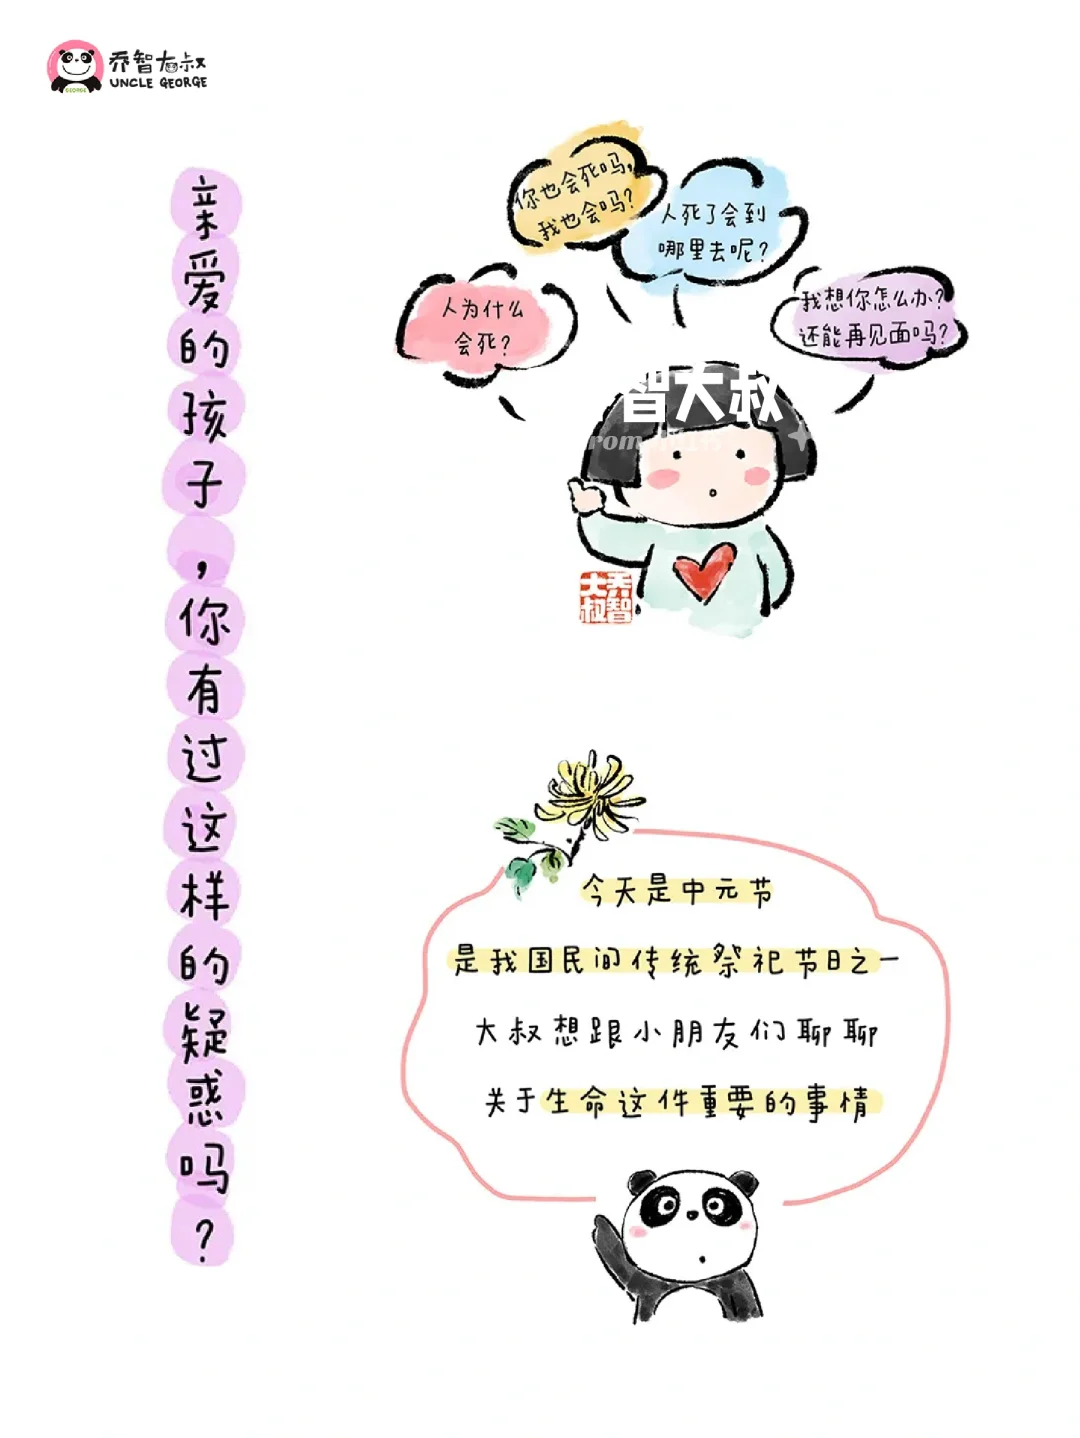 乔智大叔
UNCLE GEORGE
GEORGE
亲爱的孩子，你有过这样的疑惑吗？
你也会死吗，
我也会吗？
人死了会到
哪里去呢？
人为什么
会死？
我想你怎么办？
还能再见面吗？
智大叔
rom
乔智
大叔
今天是中元节
是我国民间传统祭祀节日之一
大叔想跟小朋友们聊聊
关于生命这件重要的事情